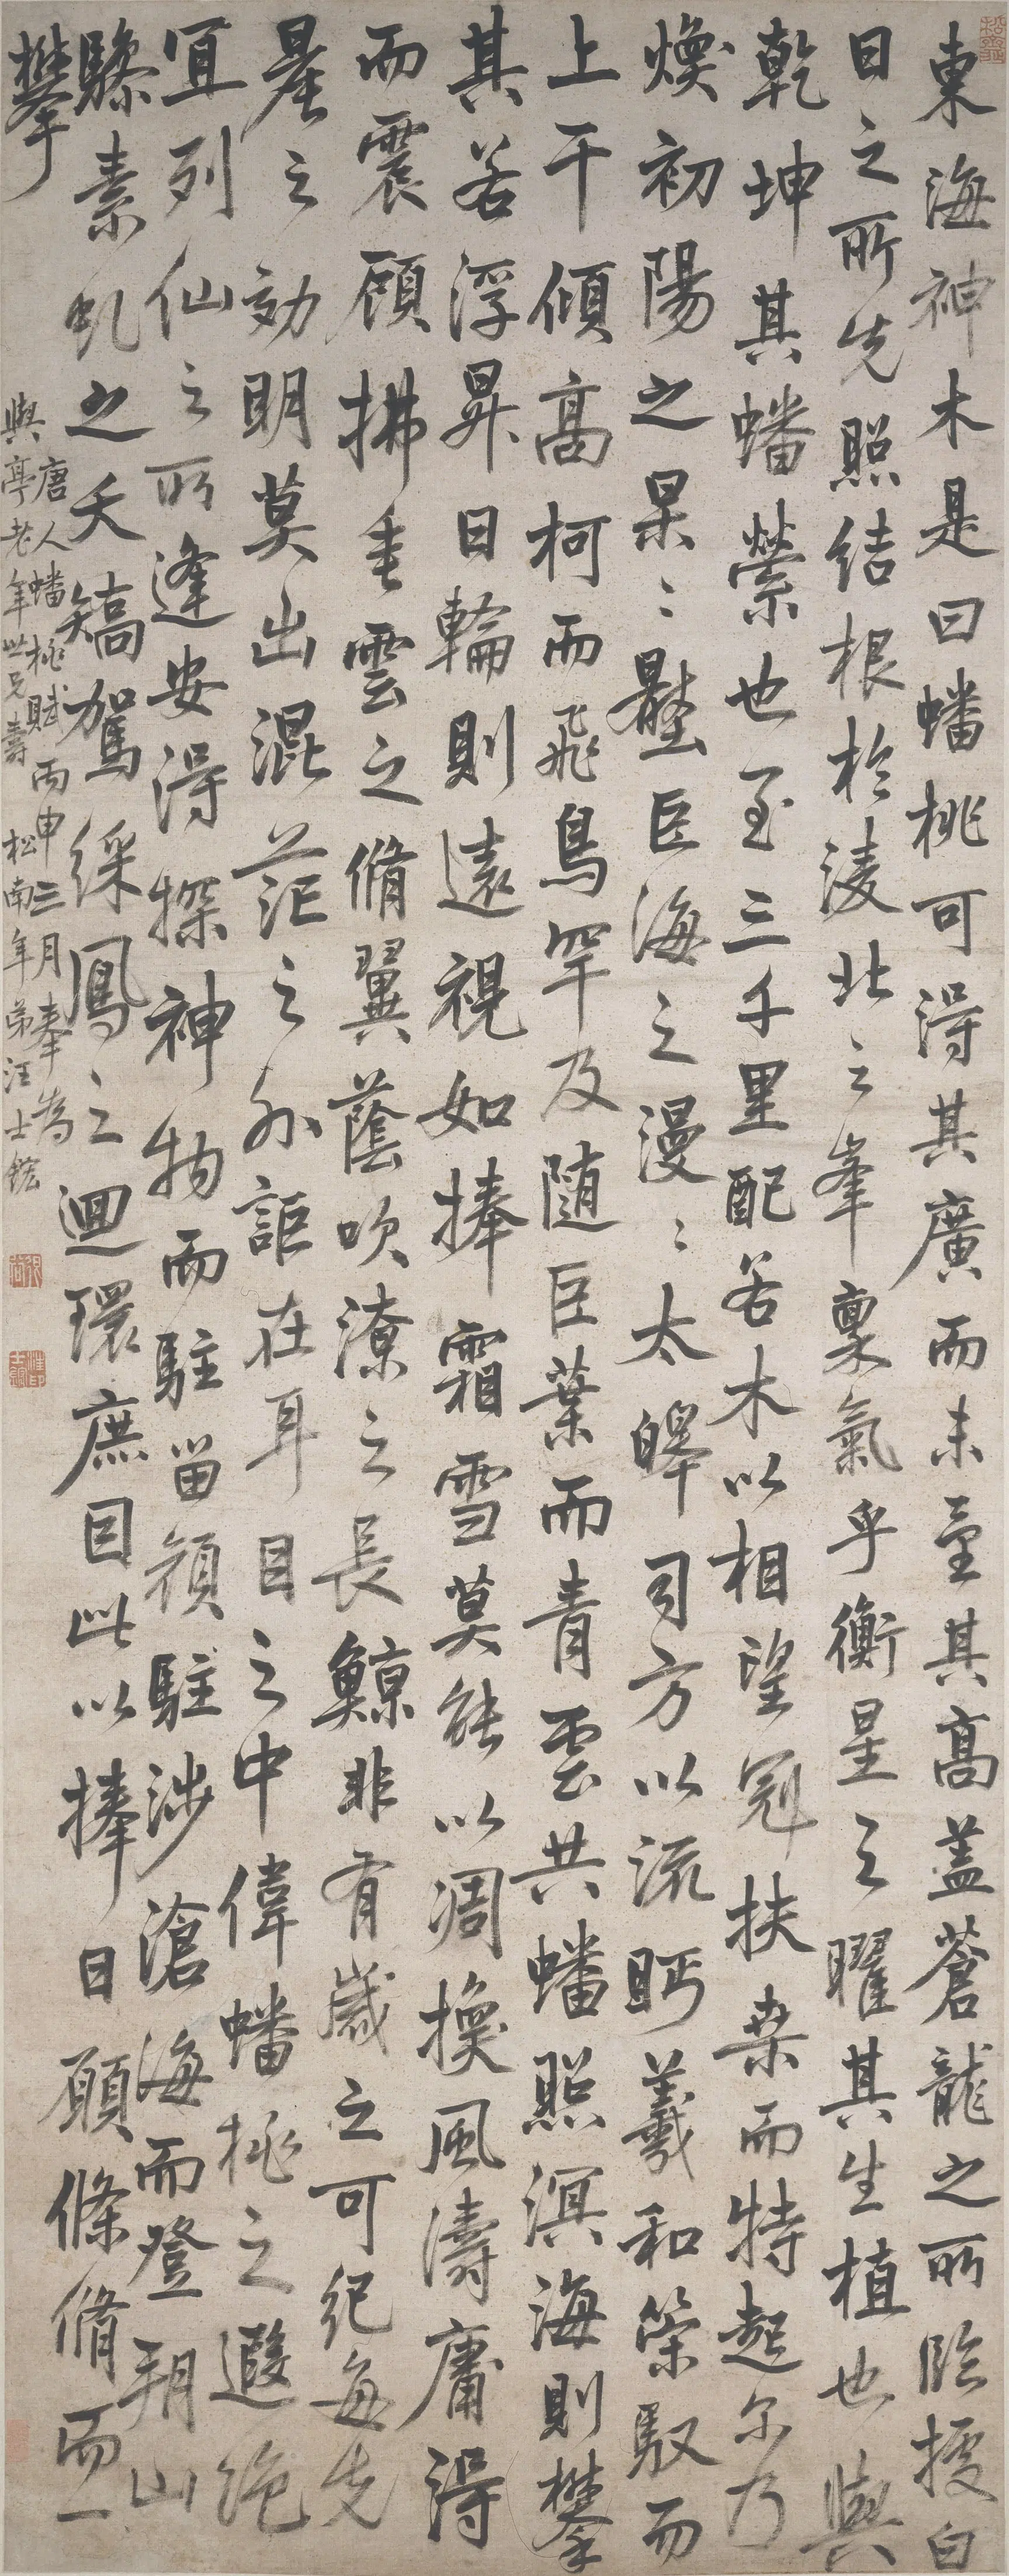 東海神木是曰蟠桃可得其廣而未量其高蓋蒼龍之所臨擾白
日之所先照結根於凌北之峯稟氣乎衡星之曜其生植也與
乾坤其蟠縈也至三千里配若木以相望冠扶桑而特起尔乃
煥初陽之杲〻壓巨海之漫〻太皞司方以流眄羲和策馭而
上干傾高柯而飛鳥罕及随巨葉而青雲共蟠照溟海則攀
其若浮昇日輪則遠視如捧霜雪莫能以凋換風濤庸得
而震頋拂垂雲之脩翼蔭吹潦之長鯨非有歲之可纪每先
星之効明莫出混茫之外詎在耳目之中偉蟠桃之遐絶
宜列仙之所逢安得探神物而駐留願駐涉滄海而登朔山
驂素虬之夭矯駕綵鳳之迴環庶因此以捧日願條脩而一
攀
唐人蟠桃賦丙申三月奉為
與亭老年世兄壽 松南年弟汪士鋐